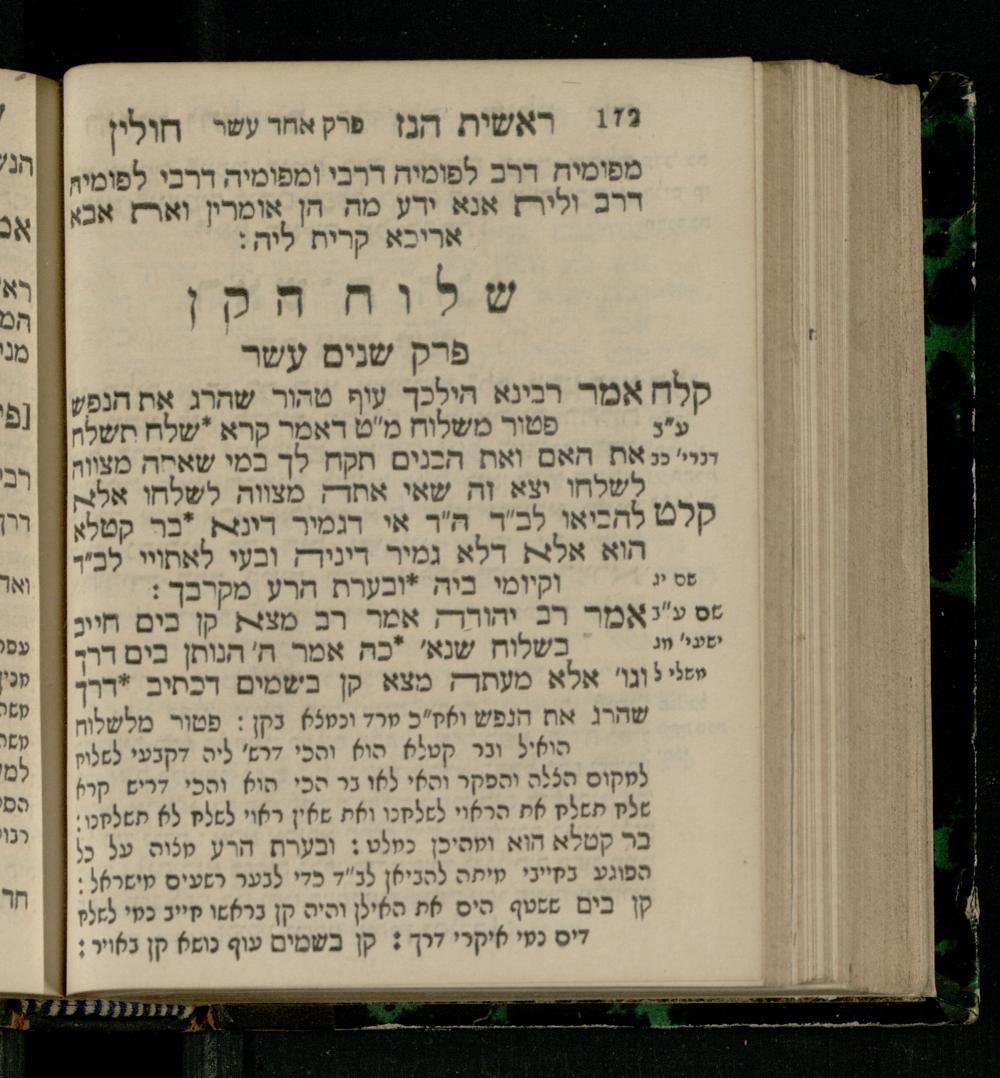 172 ראשית הגז פרק אחד עשר חולין
מפומיה דרב לפומיה דרבי ומפומיה דרבי לפומיה
דרב ולית אנא ידע מה הן אומרין ואת אבא
אריכא קרית ליה:
שלוח הקן
פרק שנים עשר
קלח אמר רבינא הילכך עוף טהור שהרג את הנפש
ע"ב פטור משלוח מ"ט דאמר קרא *שלח תשלח
דברי' כב את האם ואת הבנים תקח לך במי שאתה מצווה
לשלחו יצא זה שאי אתה מצווה לשלחו אלא
קלט להביאו לב"ד ה"ד אי דגמיר דינא *בר קטלא
הוא אלא דלא גמיר דיניה ובעי לאתויי לב"ד
שם יג וקיומי ביה *ובערת הרע מקרבך:
שם ע"ב אמר רב יהודה אמר רב מצא קן בים חייב
ישעי' מג בשלוח שנא' *כה אמר ה' הנותן בים דרך
משלי ל וגו' אלא מעתה מצא קן בשמים דכתיב *דרך
שהרג את הנפש ואח"כ מרד ונמצא בקן: פטור מלשלוח
הואיל ובר קטלא הוא והכי דרש' ליה דקבעי לשלוח
למקום הצלה והפקר והאי לאו בר הכי הוא והכי דריש קרא
שלח תשלח את הראוי לשלחנו ואת שאין ראוי לשלח לא תשלחנו:
בר קטלא הוא ומהיכן נמלט: ובערת הרע מצוה על כל
הפוגע בחייבי מיתה להביאן לב"ד כדי לבער רשעים מישראל:
קן בים ששטף הים את האילן והיה קן בראשו חייב נמי לשלח
דים נמי איקרי דרך: קן בשמים עוף נושא קן באויר: